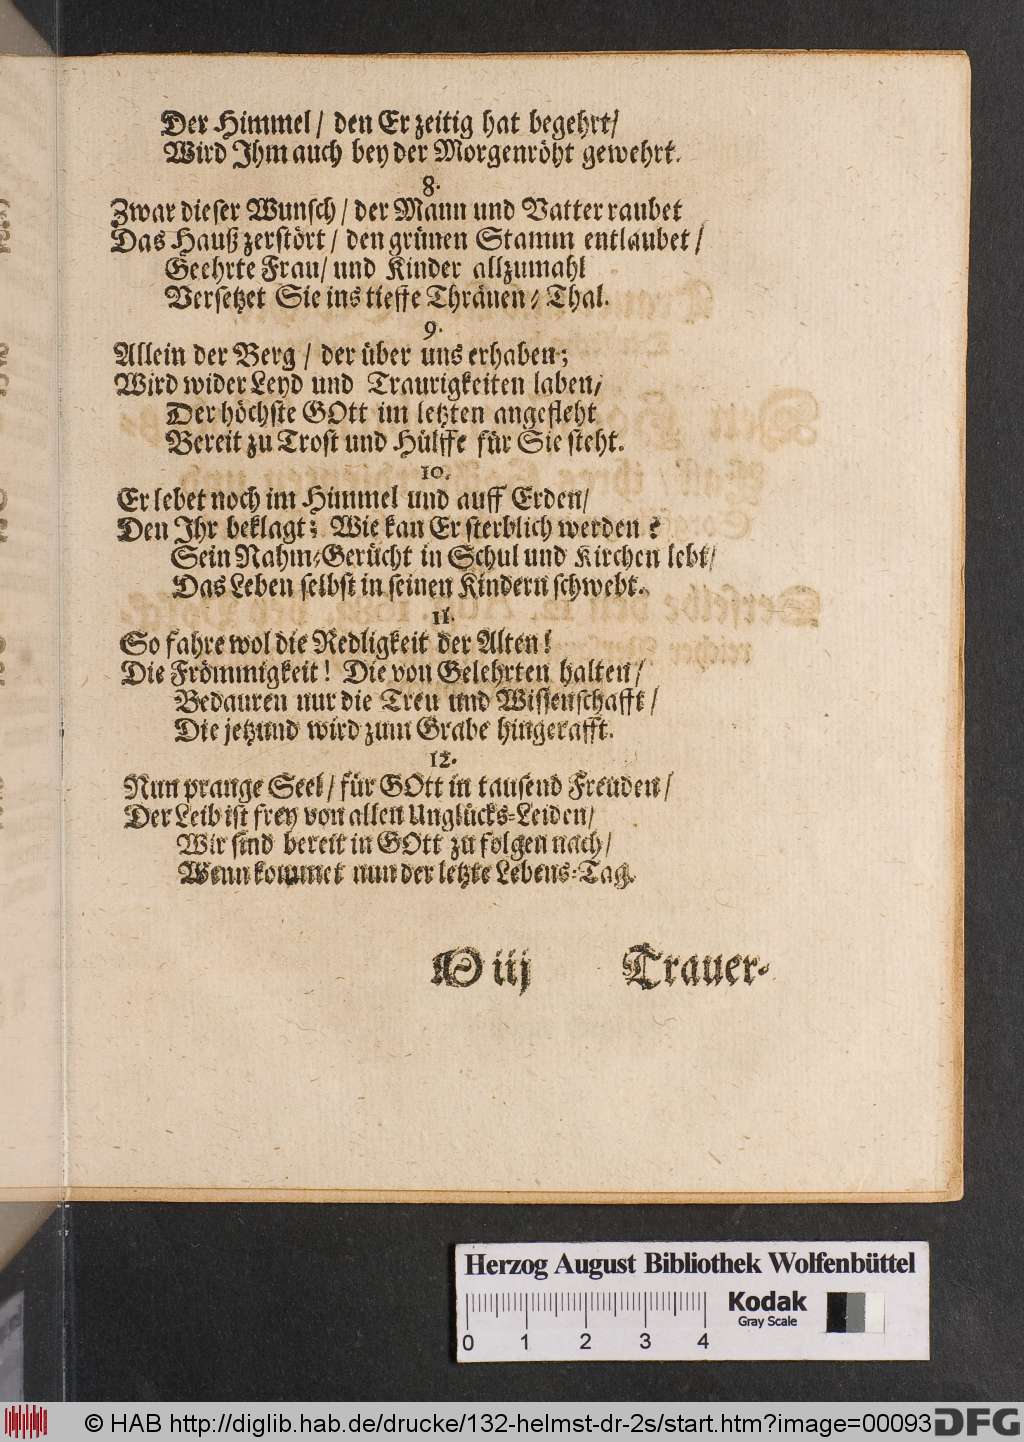 Der Himmel / den Er zeitig hat begehrt /
Wird Ihm auch bey der Morgenröht gewehrt.
8.
Zwar dieser Wunsch / der Mann und Vatter raubet
Das Hauß zerstört / den grünen Stamm entlaubet /
Geehrte Frau / und Kinder allzumahl
Versetzet Sie ins tieffe Thränen-Thal.
9.
Allein der Berg / der über uns erhaben;
Wird wider Leyd und Traurigkeiten laben /
Der höchste GOtt im letzten angefleht
Bereit zu Trost und Hülffe für Sie steht.
10.
Er lebet noch im Himmel und auff Erden /
Den Ihr beklagt; Wie kan Er sterblich werden?
Sein Nahm-Gerücht in Schul und Kirchen lebt /
Das Leben selbst in seinen Kindern schwebt.
11.
So fahre wol die Redligkeit der Alten!
Die Frömmigkeit! Die von Gelehrten halten /
Bedauren nur die Treu und Wissenschafft /
Die jetzund wird zum Grabe hingerafft.
12.
Nun prange Seel / für GOtt in tausend Freuden /
Der Leib ist frey von allen Unglücks-Leiden /
Wir sind bereit in GOtt zu folgen nach /
Wenn kommet nun der letzte Lebens-Tag.
iij Trauer-
Herzog August Bibliothek Wolfenbüttel
0 1 2 3 4
Kodak
Gray Scale
© HAB http://diglib.hab.de/drucke/132-helmst-dr-2s/start.htm?image=00093
DFG